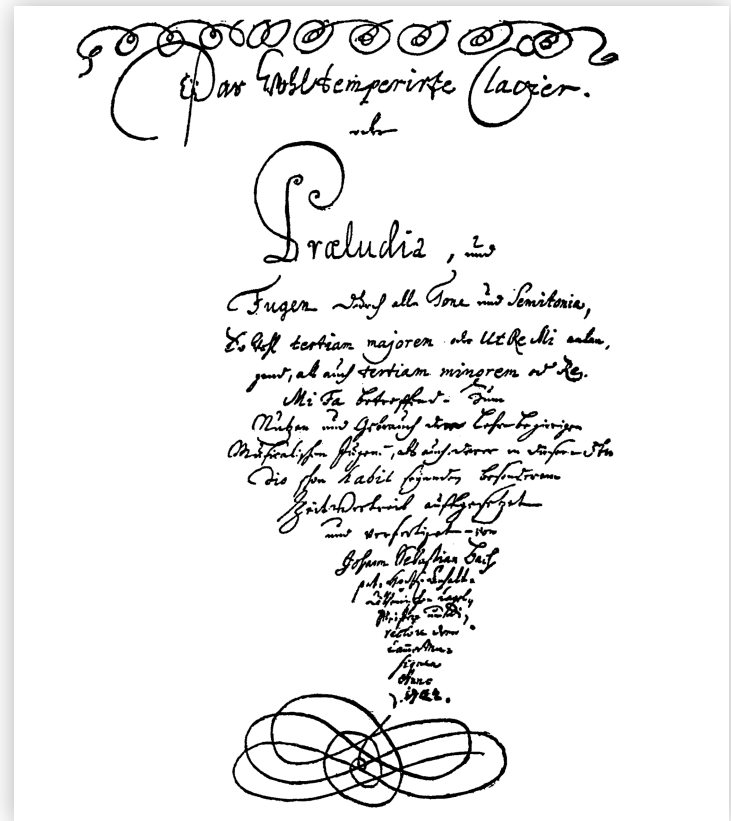 Das Wohltemperirte Clavier.
oder
Præludia, und
Fugen durch alle Tone und Semitonia,
So wohl tertiam majorem oder Ut Re Mi anlan,
gend, als auch tertiam minorem od Re,
Mi Fa betreffend. Zum
Nutzen und Gebrauch der Lehr-begierigen
Musicalischen Jugend, als auch derer in diesem stu
dio schon habil seyenden besonderem
ZeitVertreib auffgesetzet
und verfertiget von
Johann Sebastian Bach
p. t. Hochf. Anhalt-
Cöthenischen Capel,
Meister und Di,
rectore derer
Cammer Mu-
siquen
Anno
1722.